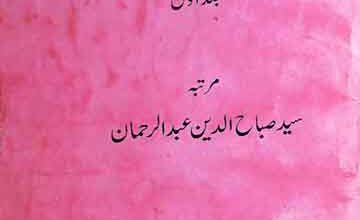 جلد اول
مرتبہ
سید صباح الدین عبدالرحمان